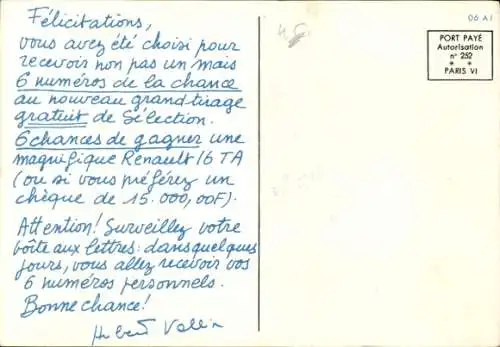 Félicitations,
vous avez été choisi pour
recevoir non pas un mais
6 numéros de la chance
au nouveau grand tirage
gratuit de Sélection.
6 chances de gagner une
magnifique Renault 16 TA
(ou si vous préférez un
chèque de 15.000,00F).
Attention! Surveillez votre
boîte aux lettres: dans quelques
jours, vous allez recevoir vos
6 numéros personnels.
Bonne chance!
06 A1
PORT PAYÉ
Autorisation
n° 252
* *
PARIS VI